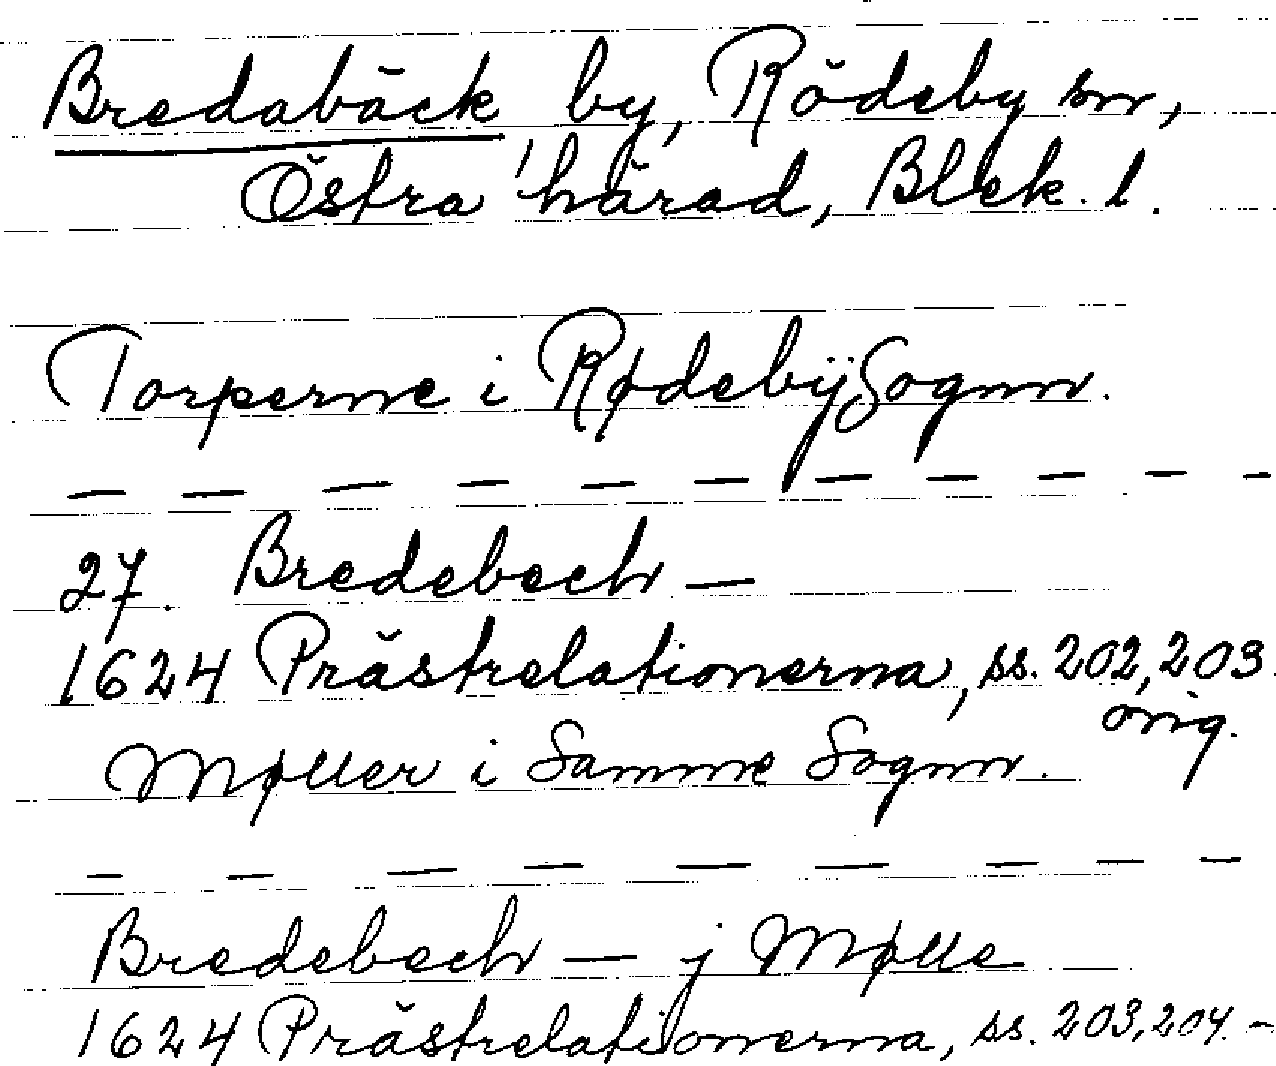 Bredabäck by, Rödeby sn,
Östra härad, Blek. l.
Torperne i Rødebÿ Sognn.
27. Bredebech —
1624 Prästrelationerna, ss. 202, 203
orig.
Møller i Samme Sognn.
Bredebech — j Mølle
1624 Prästrelationerna, ss. 203, 204. –